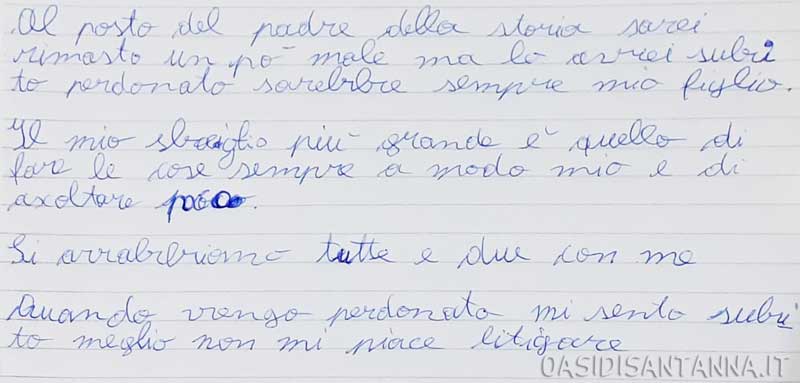 Al posto del padre della storia sarei
rimasto un po' male ma lo avrei subi
to perdonato sarebbe sempre mio figlio.
Il mio sbaiglio più grande è quello di
fare le cose sempre a modo mio e di
ascoltare poco.
Si arrabbiano tutte e due con me
Quando vengo perdonata mi sento subi
to meglio non mi piace litigare
OASIDISANTANNA.IT